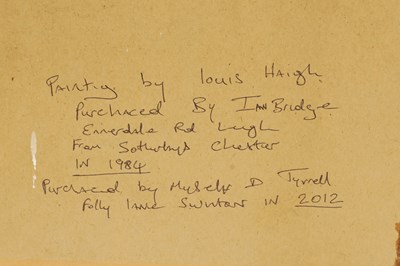 Painting by Louis Haigh.
Purchased By Ian Bridge
Ennerdale Rd Leigh
From Sothebys Chester
IN 1984
Purchased by Myself D Tyrrell
Folly Lane Swinton IN 2012